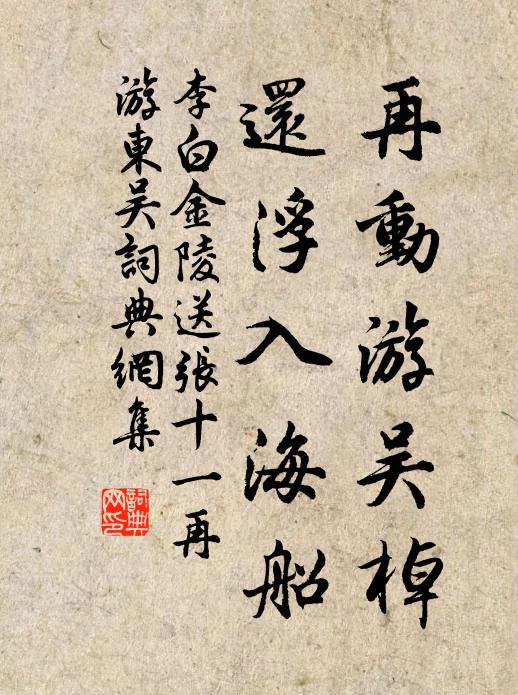 再動游吴棹
還浮入海船
李白金陵送張十一再
游東吴詞典網集
詞典网印